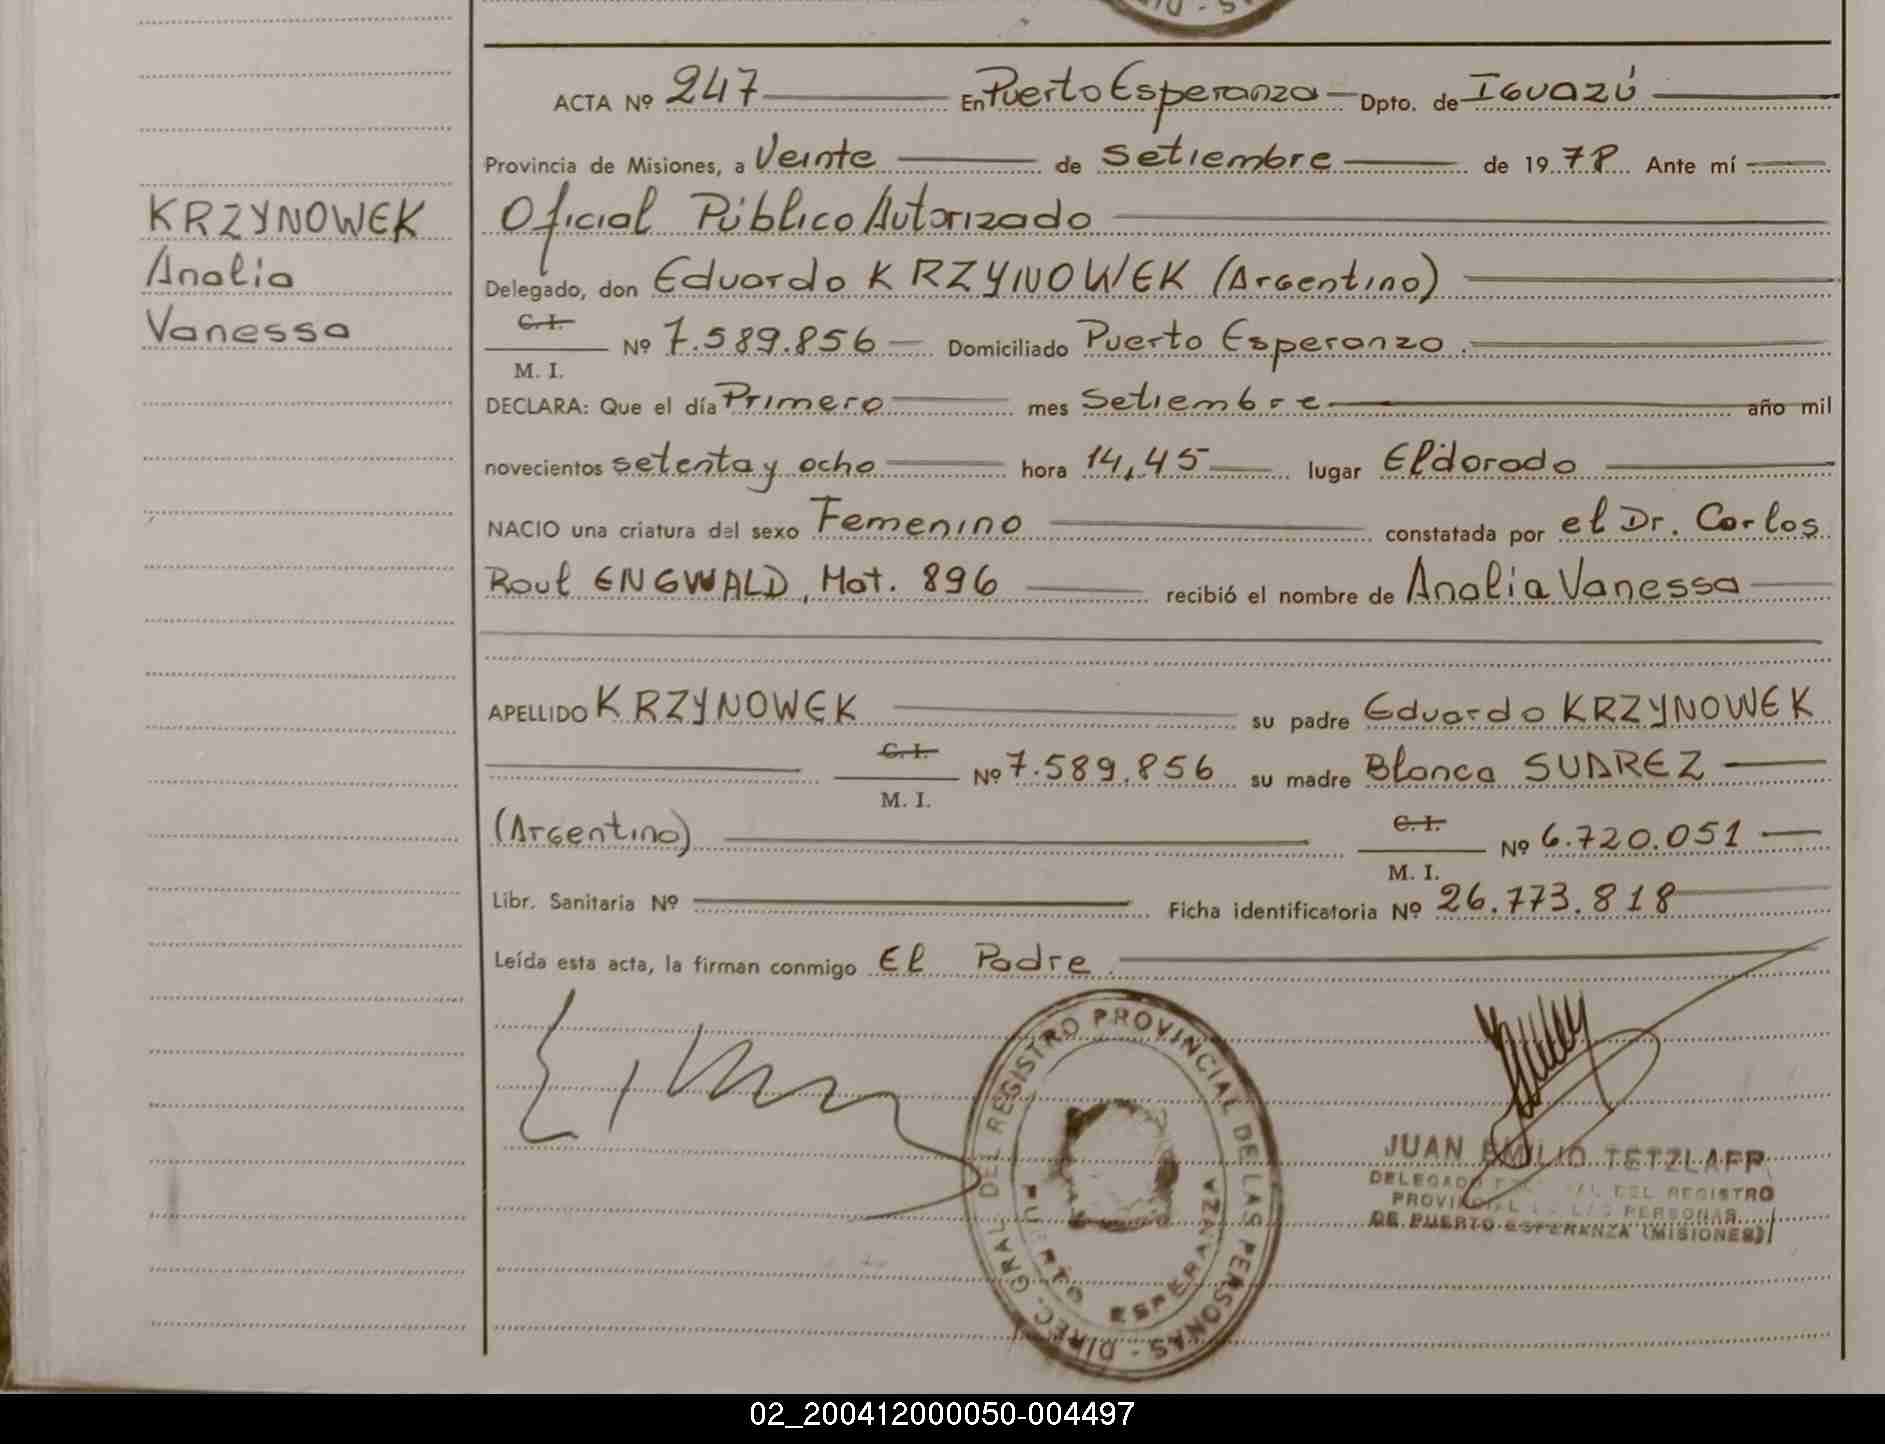 ACTA Nº 247 En Puerto Esperanza Dpto. de Iguazú
Provincia de Misiones, a Veinte de Setiembre de 1978 Ante mí
KRZYNOWEK
Analia
Vanessa
Oficial Público Autorizado
Delegado, don Eduardo KRZYNOWEK (Argentino)
C. I.
Nº 7.589.856 Domiciliado Puerto Esperanza.
M. I.
DECLARA: Que el día Primero mes Setiembre año mil
novecientos setenta y ocho hora 14,45 lugar Eldorado
NACIO una criatura del sexo Femenino constatada por el Dr. Carlos
Raul ENGWALD, Mat. 896 recibió el nombre de Analia Vanessa
APELLIDO KRZYNOWEK su padre Eduardo KRZYNOWEK
C. I.
Nº 7.589.856 su madre Blanca SUAREZ
M. I.
(Argentina)
C. I.
Nº 6.720.051
M. I.
Libr. Sanitaria Nº Ficha identificatoria Nº 26.773.818
Leída esta acta, la firman conmigo El Padre
DIREC. GRAL. DEL REGISTRO PROVINCIAL DE LAS PERSONAS
PUERTO ESPERANZA
JUAN EMILIO TETZLAFF
DELEGADO DEL REGISTRO
PROVINCIAL DE LAS PERSONAS
DE PUERTO ESPERANZA (MISIONES)
02_200412000050-004497